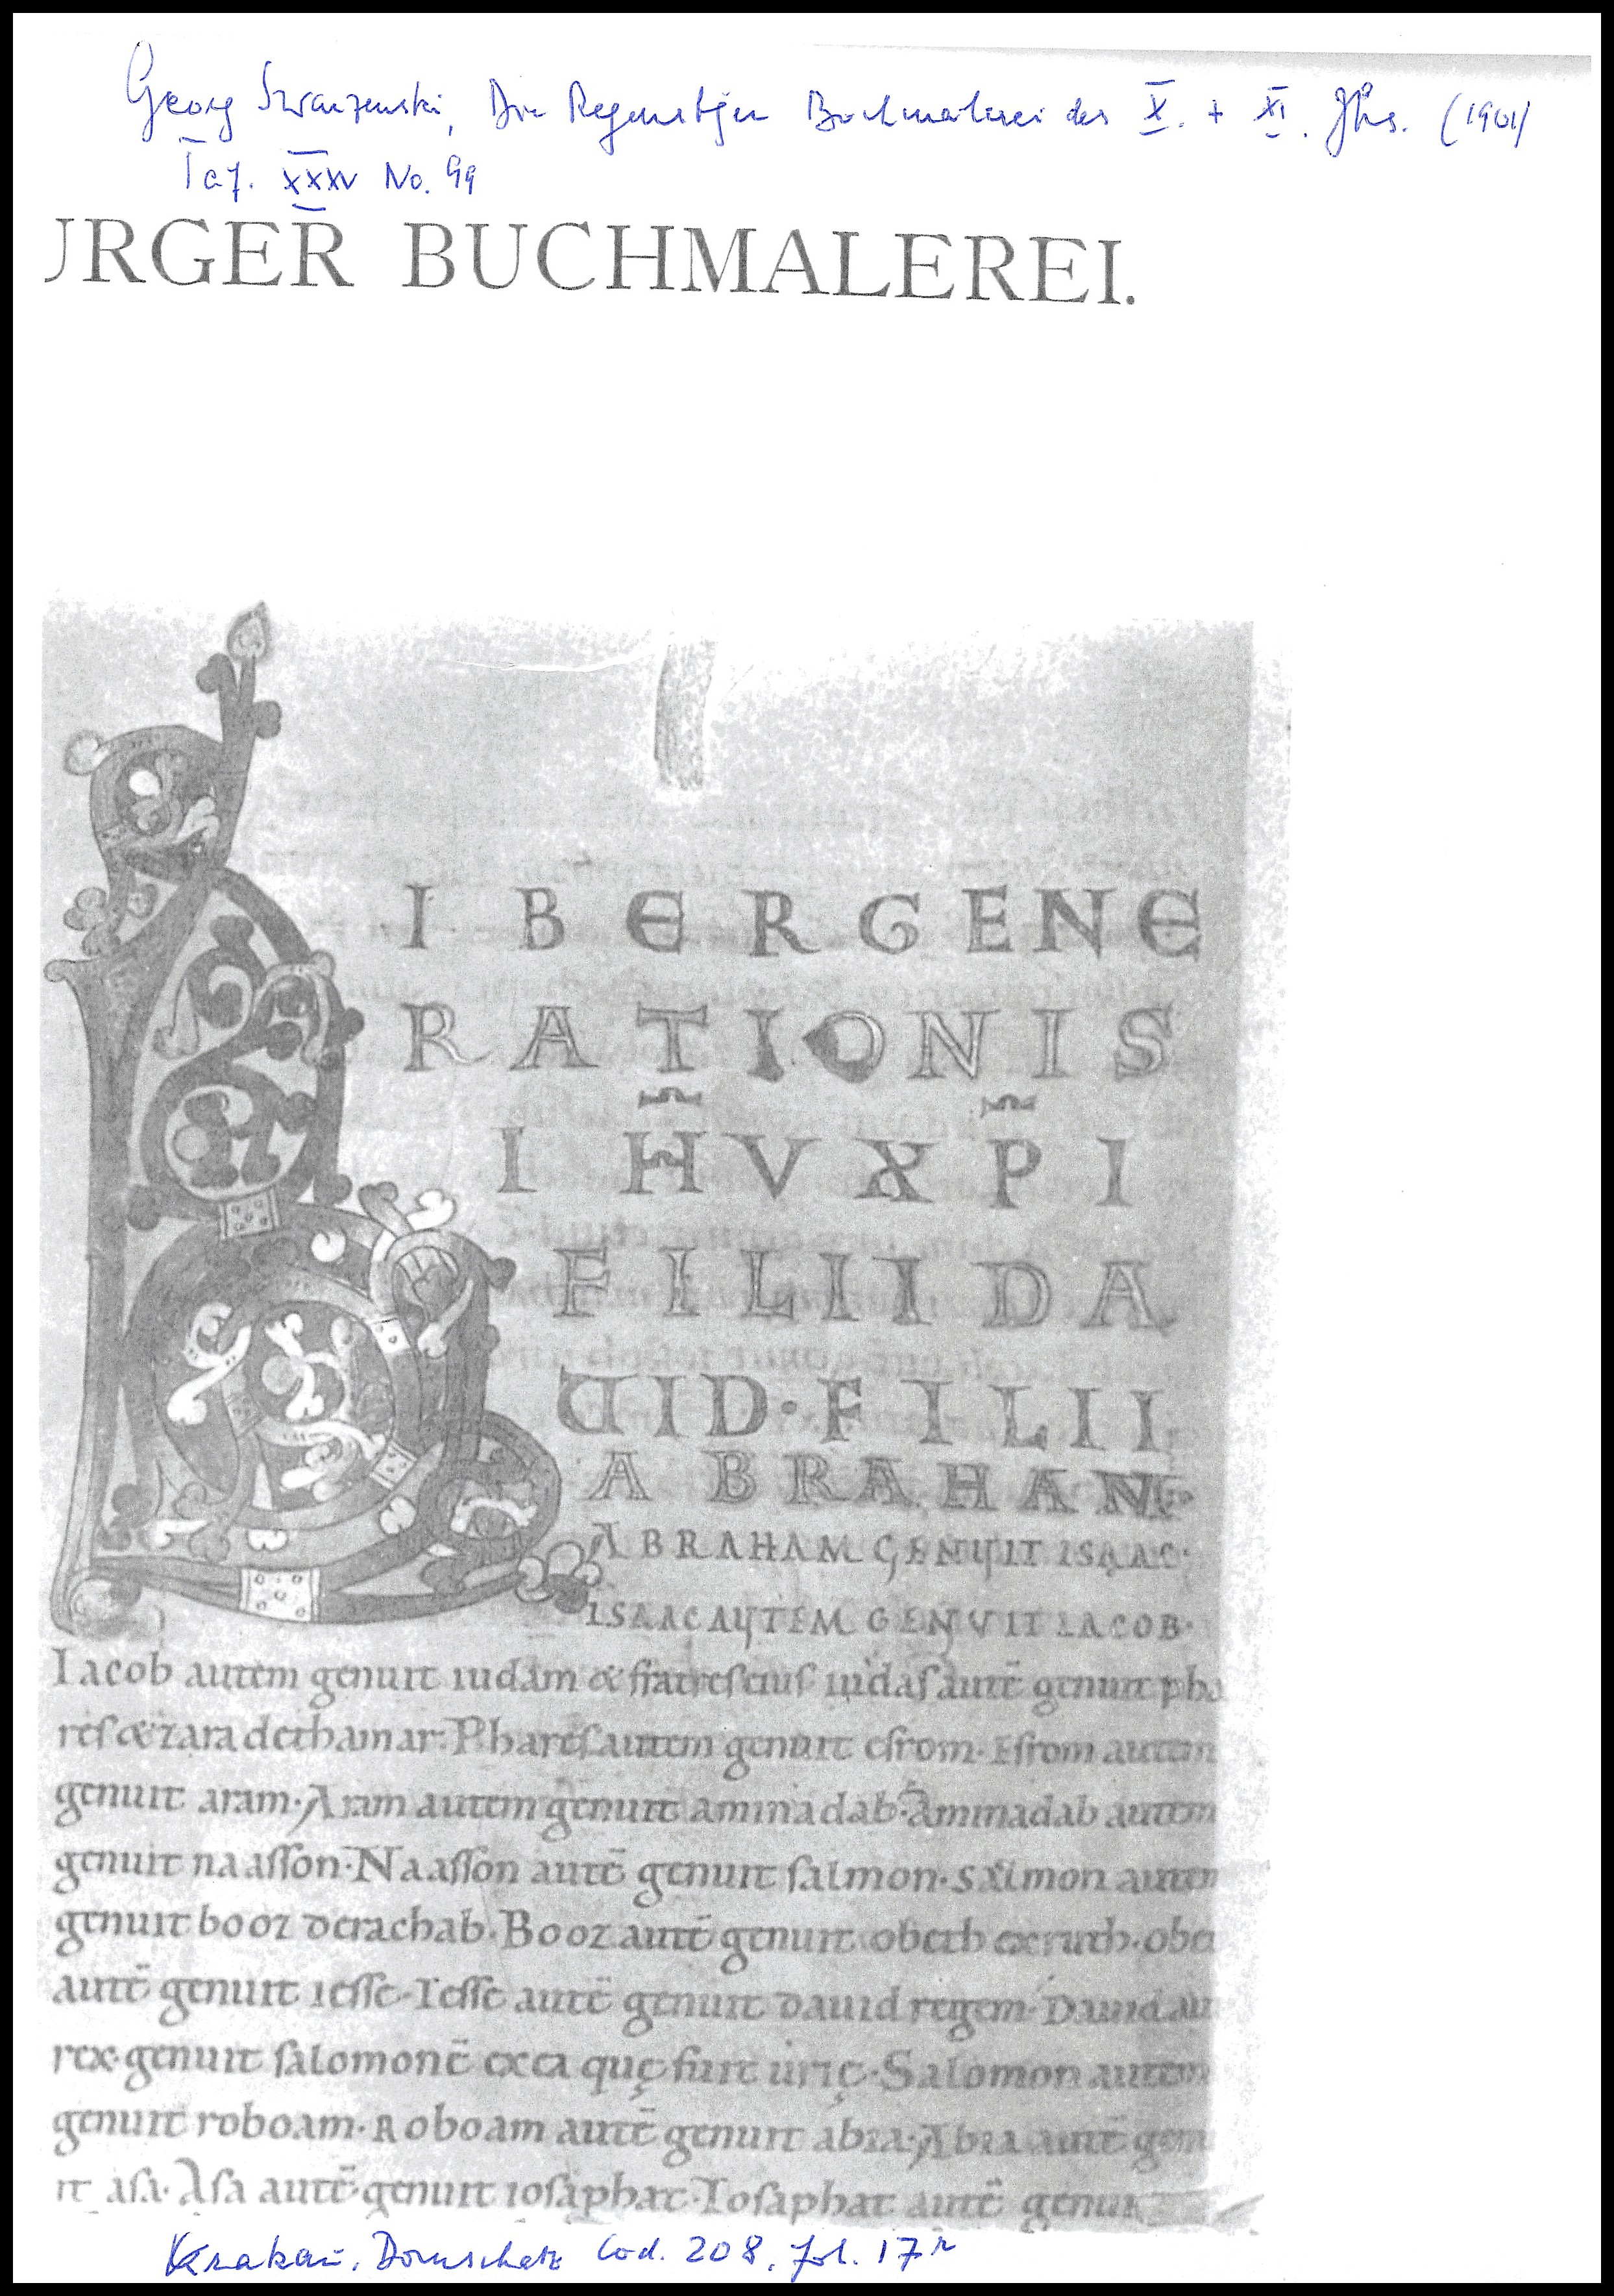 Georg Swarzenski, Die Regensbger Buchmalerei des X. + XI. Jhs. (1901)
Taf. XXXV No. 99
URGER BUCHMALEREI.
I B E R G E N E
R A T I O N I S
I H̄ V X P̄ I
F I L I I D A
U I D · F I L I I
A B R A H A M
ABRAHAM GENUIT ISAAC·
ISAAC AUTEM GENVIT IACOB·
Iacob autem genuit iudam & fratres eius iudas autē genuit pha
res & zara dethamar· Phares autem genuit esrom· Esrom autem
genuit aram· Aram autem genuit aminadab· Aminadab autem
genuit naasson· Naasson autē genuit salmon· Salmon autem
genuit booz derachab· Booz autē genuit obeth exruth· obe
autē genuit iesse· Iesse autē genuit dauid regem· Dauid au
rex· genuit salomonē exea quę fuit urię· Salomon autem
genuit roboam· Roboam autē genuit abia· Abia autē genu
it asa· Asa autē genuit iosaphat· Iosaphat autē genui
Krakau, Domschatz Cod. 208, fol. 17r